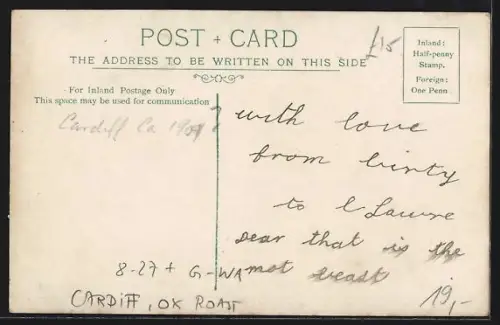 POST + CARD
THE ADDRESS TO BE WRITTEN ON THIS SIDE
Inland:
Half-penny
Stamp.
Foreign:
One Penn
£15
For Inland Postage Only
This space may be used for communication
Cardiff Ca 190 ?
with love
from
to
dear that is the
not
8-27 + G-WA
CARDIFF, OX ROAST
19,-